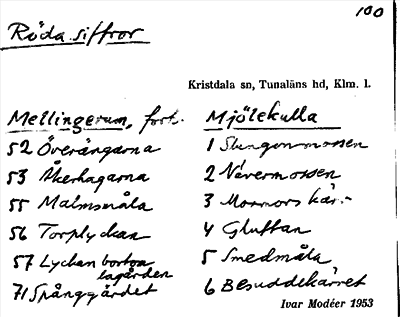 100
Röda siffror
Kristdala sn, Tunaläns hd, Klm. l.
Mellingerum, forts. Mjölekulla
52 Överängarna 1 Slungonmossen
53 Åkerhagarna 2 Nävermossen
55 Malmsmåla 3 Mormors kär-
56 Torplyckan 4 Gluttan
57 Lyckan bortom 5 Smedmåla
ladgården
71 Spånggärdet 6 Besuddekärret
Ivar Modéer 1953